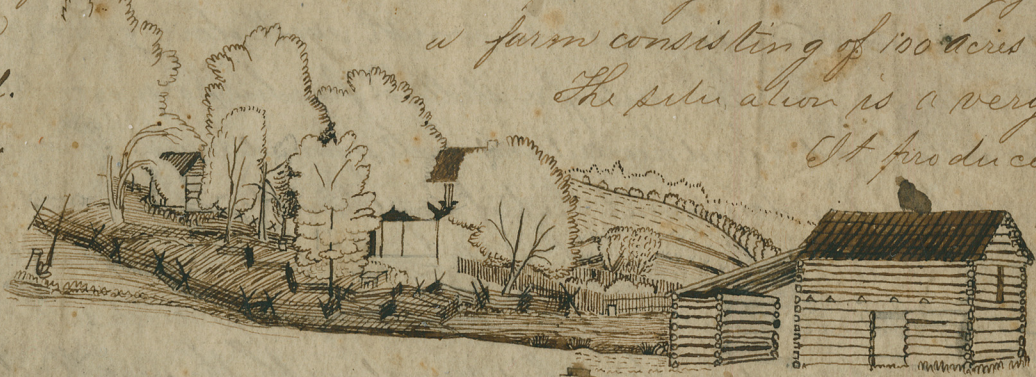 a farm consisting of 100 acres
The situation is a very
It produc